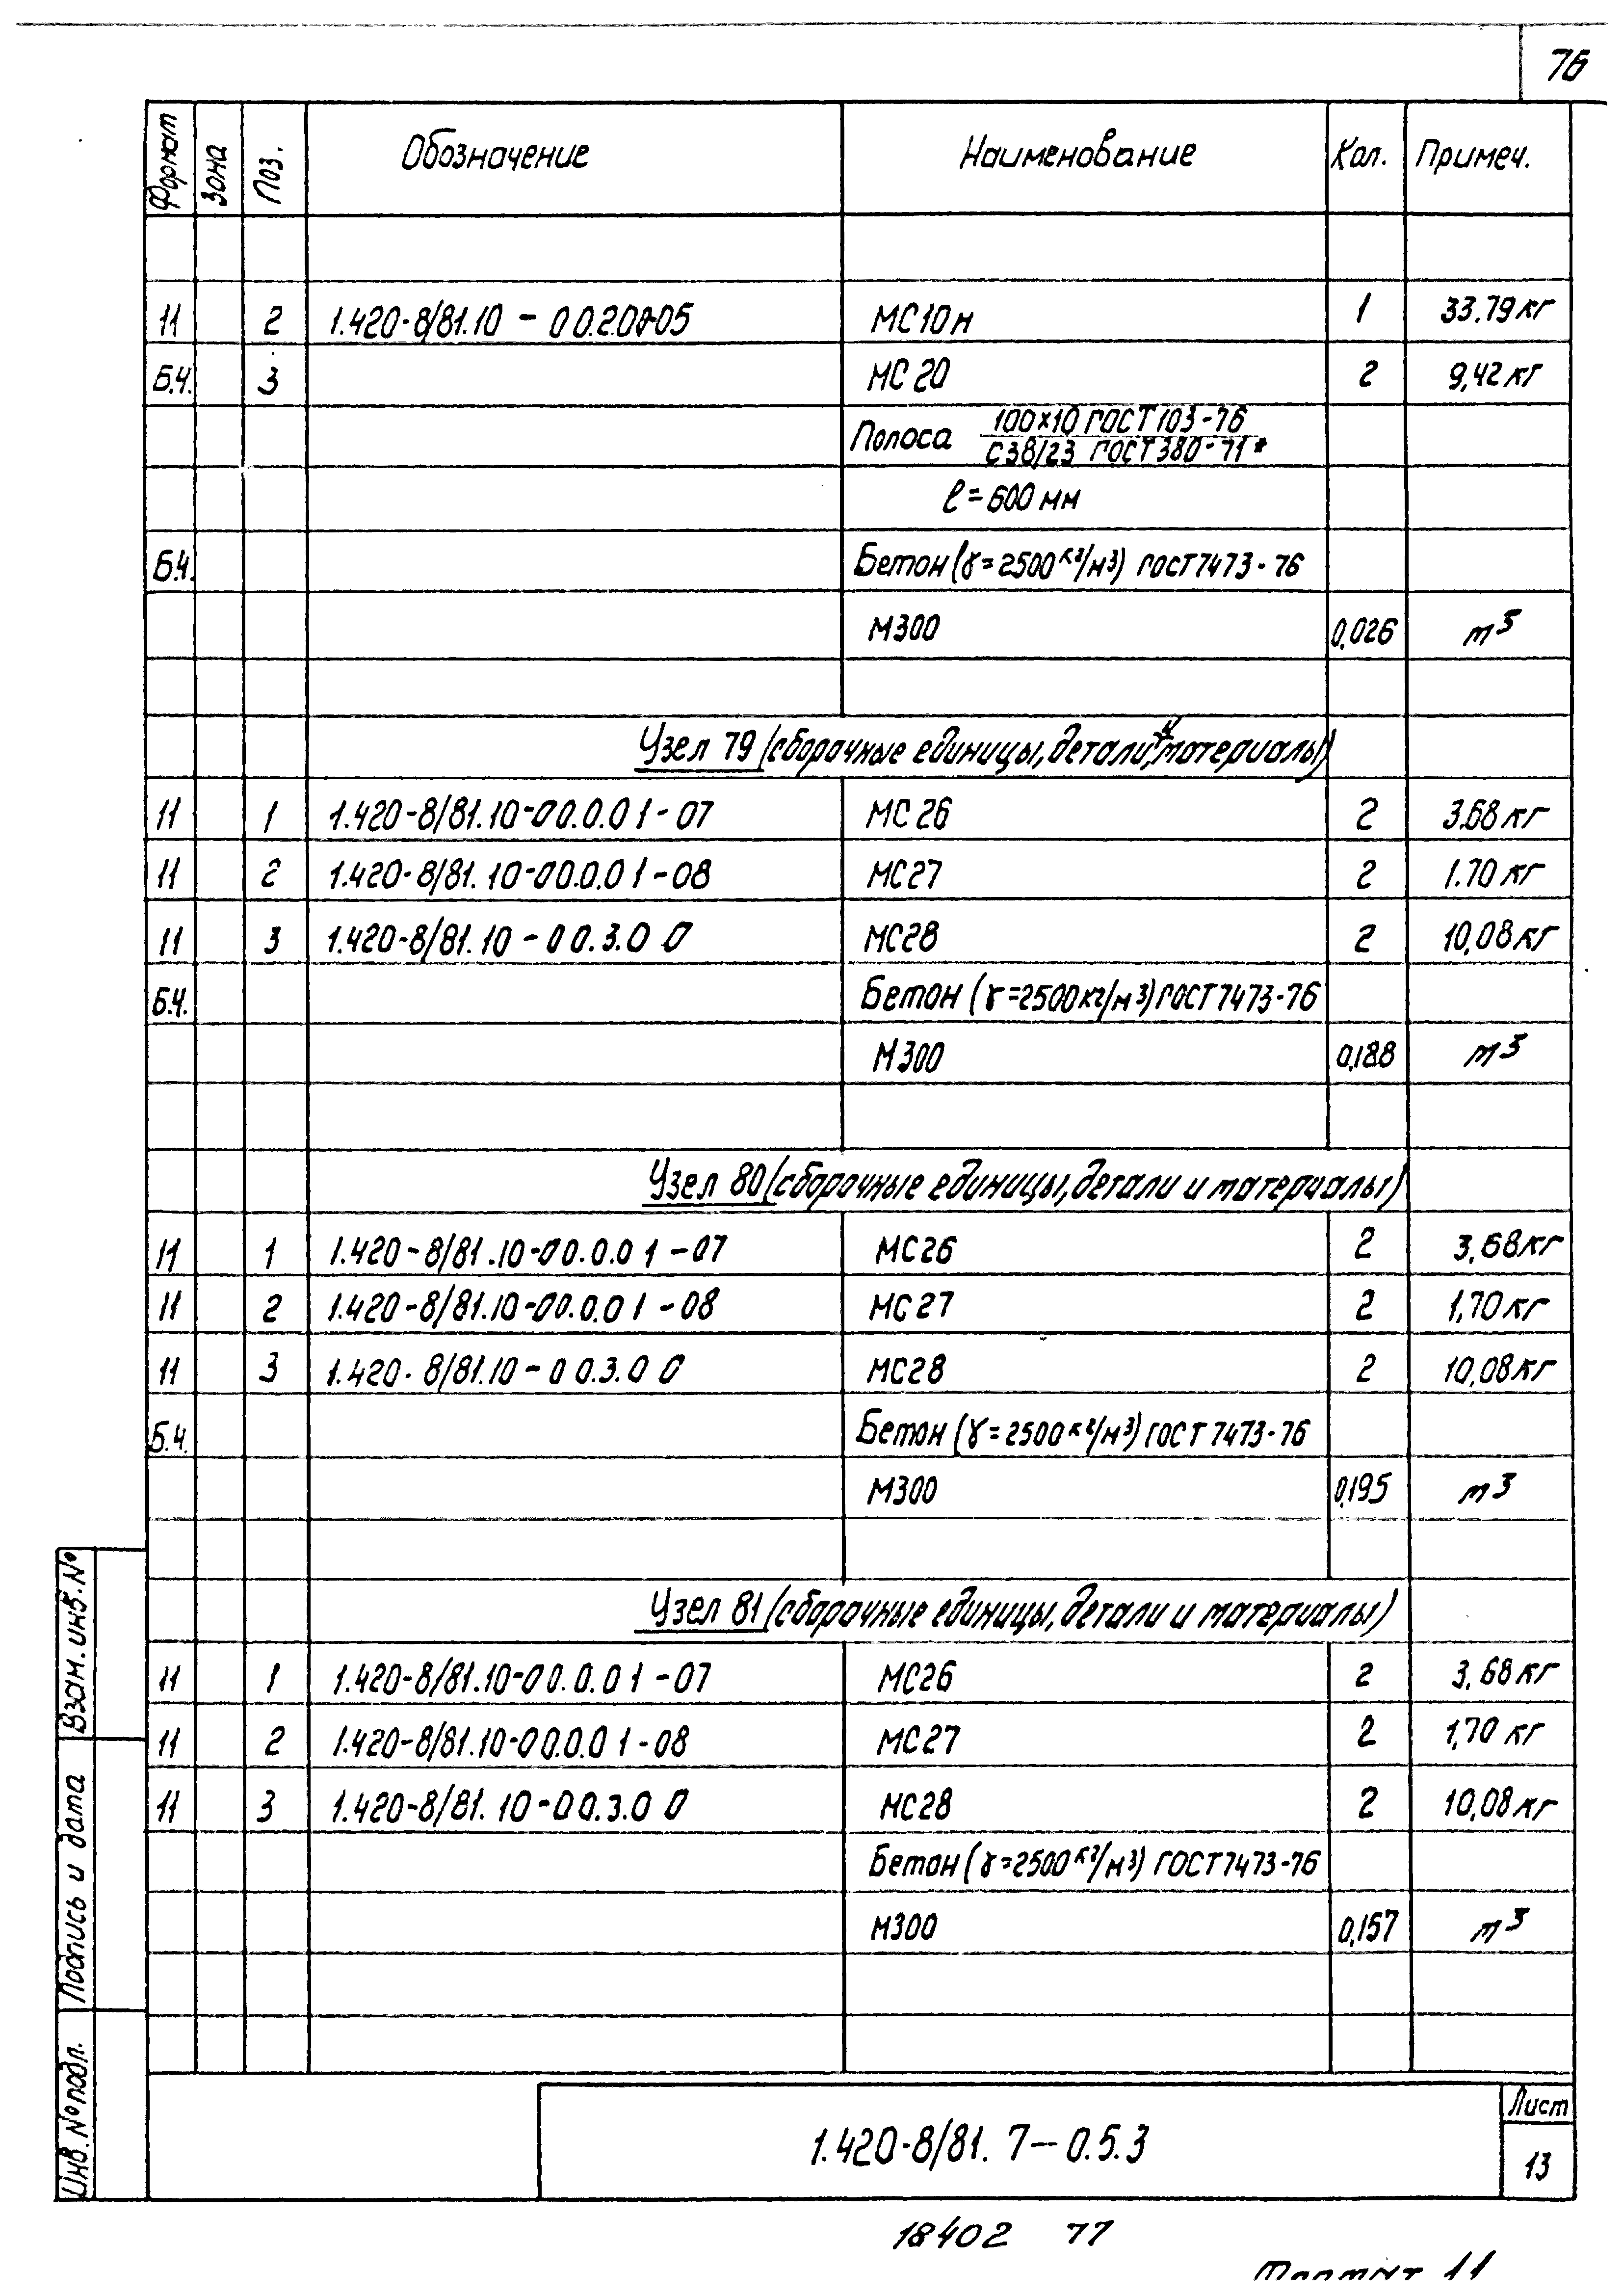 76
Формат Зона Поз. Обозначение Наименование Кол. Примеч.
11 2 1.420-8/81.10 - 00.2.00-05 МС10н 1 33.79 кг
Б.Ч. 3 МС 20 2 9,42 кг
Полоса 100х10 ГОСТ 103-76
С38/23 ГОСТ 380-71*
ℓ = 600 мм
Б.Ч. Бетон (γ=2500 кг/м3) ГОСТ 7473-76
М300 0,026 m3
Узел 79 (сборочные единицы, детали и материалы)
11 1 1.420-8/81.10-00.0.01-07 МС 26 2 3.68 кг
11 2 1.420-8/81.10-00.0.01-08 МС27 2 1.70 кг
11 3 1.420-8/81.10-00.3.00 МС28 2 10,08 кг
Б.Ч. Бетон (γ=2500 кг/м3) ГОСТ 7473-76
М300 0,188 m3
Узел 80 (сборочные единицы, детали и материалы)
11 1 1.420-8/81.10-00.0.01-07 МС26 2 3,68 кг
11 2 1.420-8/81.10-00.0.01-08 МС27 2 1,70 кг
11 3 1.420-8/81.10-00.3.00 МС28 2 10,08 кг
Б.Ч. Бетон (γ=2500 кг/м3) ГОСТ 7473-76
М300 0,195 m3
Узел 81 (сборочные единицы, детали и материалы)
11 1 1.420-8/81.10-00.0.01-07 МС26 2 3,68 кг
11 2 1.420-8/81.10-00.0.01-08 МС27 2 1,70 кг
11 3 1.420-8/81.10-00.3.00 МС28 2 10,08 кг
Бетон (γ=2500 кг/м3) ГОСТ 7473-76
М300 0,157 m3
Взам. инв. №
Подпись и дата
Инв. № подл.
1.420-8/81. 7-0.5.3
Лист
13
18402 77
11